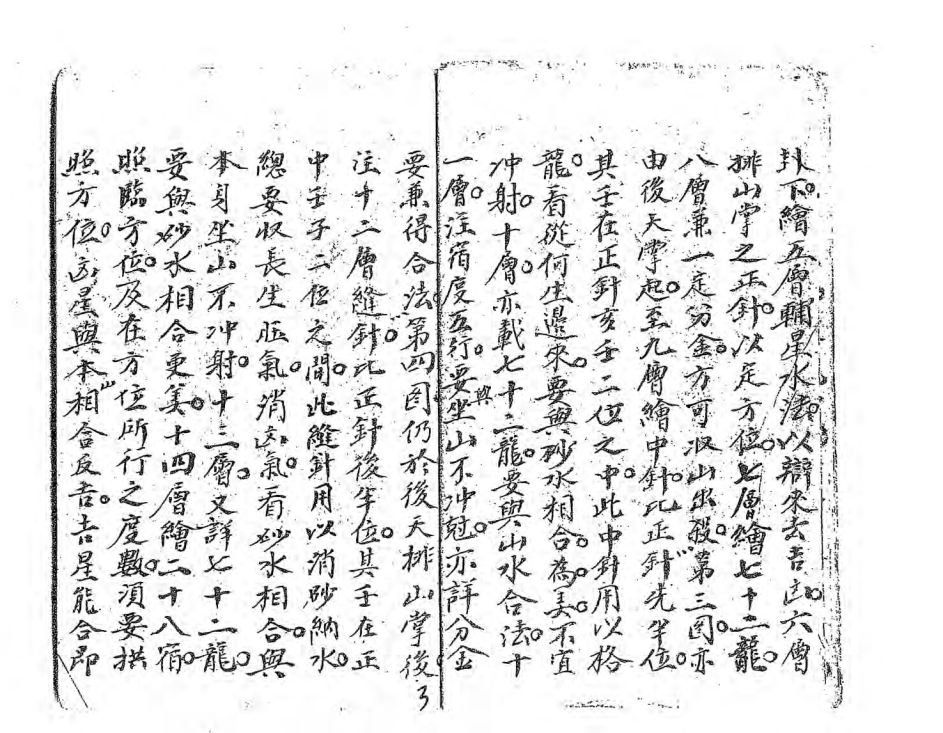 卦下。繪五層輔星水法。以辯來去吉凶。六層
排山掌之正針。以定方位。七層繪七十二龍。
八層兼一定分金。方可收山出殺。第三圖亦
由後天掌起。至九層繪中針。比正針先半位。
其壬在正針亥壬二位之中。此中針用以格
龍。看從何生邉來。要與砂水相合。為美。不宜
冲射。十層亦載七十二龍。要與山水合法。十
一層。注宿度五行。要與坐山不冲尅。亦詳分金
要兼得合法。第四圖仍於後天排山掌後
注十二層縫針。比正針後半位。其壬在正
中壬子二位之間。此縫針用以消砂納水。
總要收長生旺氣。消凶氣。看砂水相合。與
本身坐山不冲射。十三層。又詳七十二龍。
要與砂水相合更美。十四層繪二十八宿。
照臨方位。及在方位所行之度數。須要拱
照方位。凶星與本相合反吉。吉星能合即
3